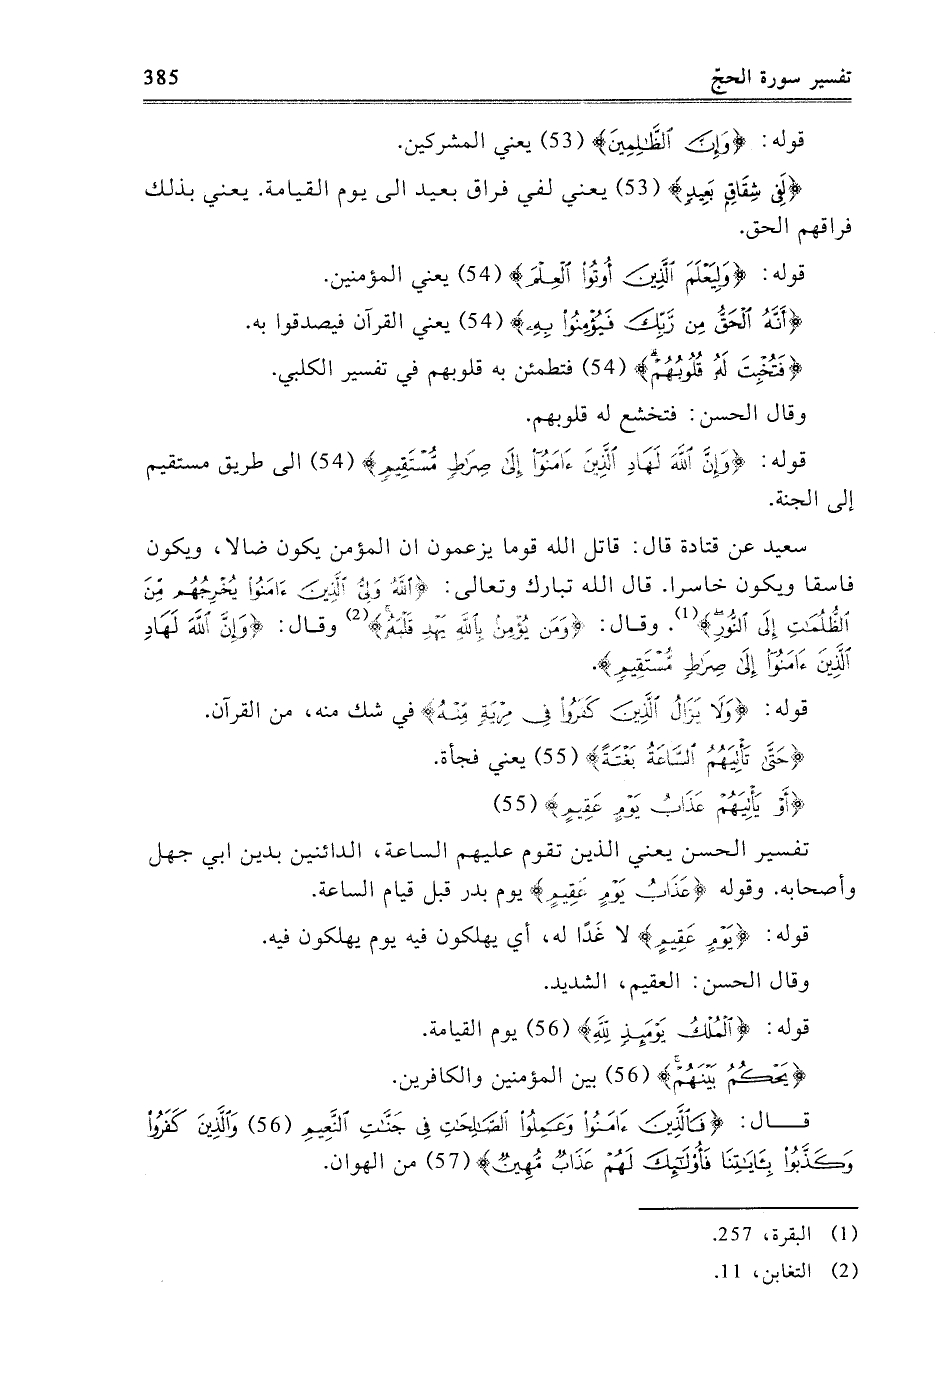 تفسير سورة الحجّ 385
قوله: ﴿وَإِنَّ ٱلظَّٰلِمِينَ﴾ (53) يعني المشركين.
﴿لَفِى شِقَاقٍۭ بَعِيدٍ﴾ (53) يعني لفي فراق بعيد الى يوم القيامة. يعني بذلك
فراقهم الحق.
قوله: ﴿وَلِيَعْلَمَ ٱلَّذِينَ أُوتُوا۟ ٱلْعِلْمَ﴾ (54) يعني المؤمنين.
﴿أَنَّهُ ٱلْحَقُّ مِن رَّبِّكَ فَيُؤْمِنُوا۟ بِهِۦ﴾ (54) يعني القرآن فيصدقوا به.
﴿فَتُخْبِتَ لَهُۥ قُلُوبُهُمْ ۗ﴾ (54) فتطمئن به قلوبهم في تفسير الكلبي.
وقال الحسن: فتخشع له قلوبهم.
قوله: ﴿وَإِنَّ ٱللَّهَ لَهَادِ ٱلَّذِينَ ءَامَنُوٓا۟ إِلَىٰ صِرَٰطٍ مُّسْتَقِيمٍ﴾ (54) الى طريق مستقيم
إلى الجنة.
سعيد عن قتادة قال: قاتل الله قوما يزعمون ان المؤمن يكون ضالا، ويكون
فاسقا ويكون خاسرا. قال الله تبارك وتعالى: ﴿ٱللَّهُ وَلِىُّ ٱلَّذِينَ ءَامَنُوا۟ يُخْرِجُهُم مِّنَ
ٱلظُّلُمَٰتِ إِلَى ٱلنُّورِ ۖ﴾(1). وقال: ﴿وَمَن يُؤْمِنۢ بِٱللَّهِ يَهْدِ قَلْبَهُۥ ۚ﴾(2) وقال: ﴿وَإِنَّ ٱللَّهَ لَهَادِ
ٱلَّذِينَ ءَامَنُوٓا۟ إِلَىٰ صِرَٰطٍ مُّسْتَقِيمٍ﴾.
قوله: ﴿وَلَا يَزَالُ ٱلَّذِينَ كَفَرُوا۟ فِى مِرْيَةٍ مِّنْهُ﴾ في شك منه، من القرآن.
﴿حَتَّىٰ تَأْتِيَهُمُ ٱلسَّاعَةُ بَغْتَةً﴾ (55) يعني فجأة.
﴿أَوْ يَأْتِيَهُمْ عَذَابُ يَوْمٍ عَقِيمٍ﴾ (55)
تفسير الحسن يعني الذين تقوم عليهم الساعة، الدائنين بدين ابي جهل
وأصحابه. وقوله ﴿عَذَابُ يَوْمٍ عَقِيمٍ﴾ يوم بدر قبل قيام الساعة.
قوله: ﴿يَوْمٍ عَقِيمٍ﴾ لا غَدًا له، أي يهلكون فيه يوم يهلكون فيه.
وقال الحسن: العقيم، الشديد.
قوله: ﴿ٱلْمُلْكُ يَوْمَئِذٍ لِّلَّهِ﴾ (56) يوم القيامة.
﴿يَحْكُمُ بَيْنَهُمْ ۚ﴾ (56) بين المؤمنين والكافرين.
قال: ﴿فَٱلَّذِينَ ءَامَنُوا۟ وَعَمِلُوا۟ ٱلصَّٰلِحَٰتِ فِى جَنَّٰتِ ٱلنَّعِيمِ (56) وَٱلَّذِينَ كَفَرُوا۟
وَكَذَّبُوا۟ بِـَٔايَٰتِنَا فَأُو۟لَٰٓئِكَ لَهُمْ عَذَابٌ مُّهِينٌ﴾ (57) من الهوان.
(1) البقرة، 257.
(2) التغابن، 11.